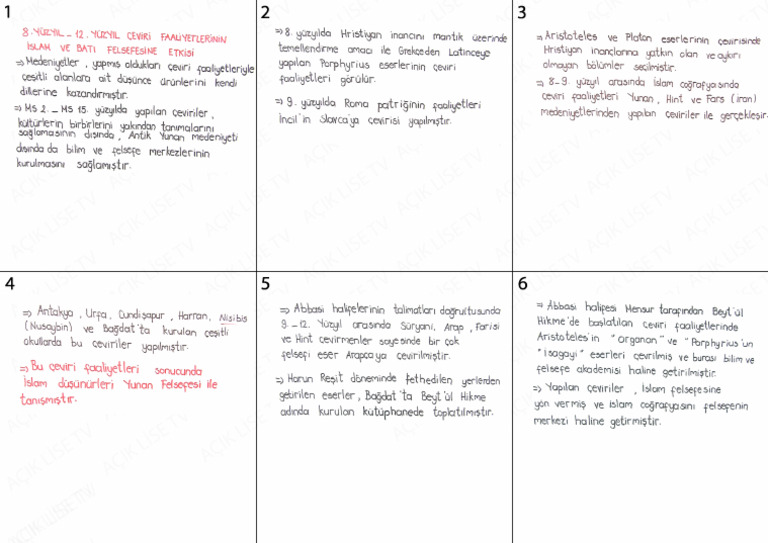 1
8. YÜZYIL_ 12. YÜZYIL ÇEVİRİ FAALİYETLERİNİN
İSLAM VE BATI FELSEFESİNE ETKİSİ
⇒ Medeniyetler, yapmış oldukları çeviri faaliyetleriyle
çeşitli alanlara ait düşünce ürünlerini kendi
dillerine kazandırmıştır.
⇒ MS 2. _ MS 15. yüzyılda yapılan çeviriler,
kültürlerin birbirlerini yakından tanımalarını
sağlamasının dışında, Antik Yunan medeniyeti
dışında da bilim ve felsefe merkezlerinin
kurulmasını sağlamıştır.
2
⇒ 8. yüzyılda Hristiyan inancını mantık üzerinde
temellendirme amacı ile Grekceden Latinceye
yapılan Porphyrius eserlerinin çeviri
faaliyetleri görülür.
⇒ 9. yüzyılda Roma patriğinin faaliyetleri
İncil'in Slavca'ya çevirisi yapılmıştır.
3
⇒ Aristoteles ve Platon eserlerinin çevirisinde
Hristiyan inançlarına yatkın olan ve aykırı
olmayan bölümler seçilmiştir.
⇒ 8_9. yüzyıl arasında İslam coğrafyasında
çeviri faaliyetleri Yunan, Hint ve Fars (İran)
medeniyetlerinden yapılan çeviriler ile gerçekleşir.
4
⇒ Antakya, Urfa, Cundişapur, Harran, Nisibis
(Nusaybin) ve Bağdat'ta kurulan çeşitli
okullarda bu çeviriler yapılmıştır.
⇒ Bu çeviri faaliyetleri sonucunda
İslam düşünürleri Yunan Felsefesi ile
tanışmıştır.
5
⇒ Abbasi halifelerinin talimatları doğrultusunda
8._12. Yüzyıl arasında Süryani, Arap, Farisi
ve Hint çevirmenler sayesinde bir çok
felsefi eser Arapçaya çevirilmiştir.
⇒ Harun Reşit döneminde fethedilen yerlerden
getirilen eserler, Bağdat'ta Beyt'ül Hikme
adında kurulan kütüphanede toplatılmıştır.
6
⇒ Abbasi halifesi Mensur tarafından Beyt'ül
Hikme'de başlatılan çeviri faaliyetlerinde
Aristoteles'in "Organon" ve "Porphyrius'un
"Isagoji" eserleri çevrilmiş ve burası bilim ve
felsefe akademisi haline getirilmiştir.
⇒ Yapılan çeviriler, İslam felsefesine
yön vermiş ve İslam coğrafyasını felsefenin
merkezi haline getirmiştir.
AÇIK LİSE TV